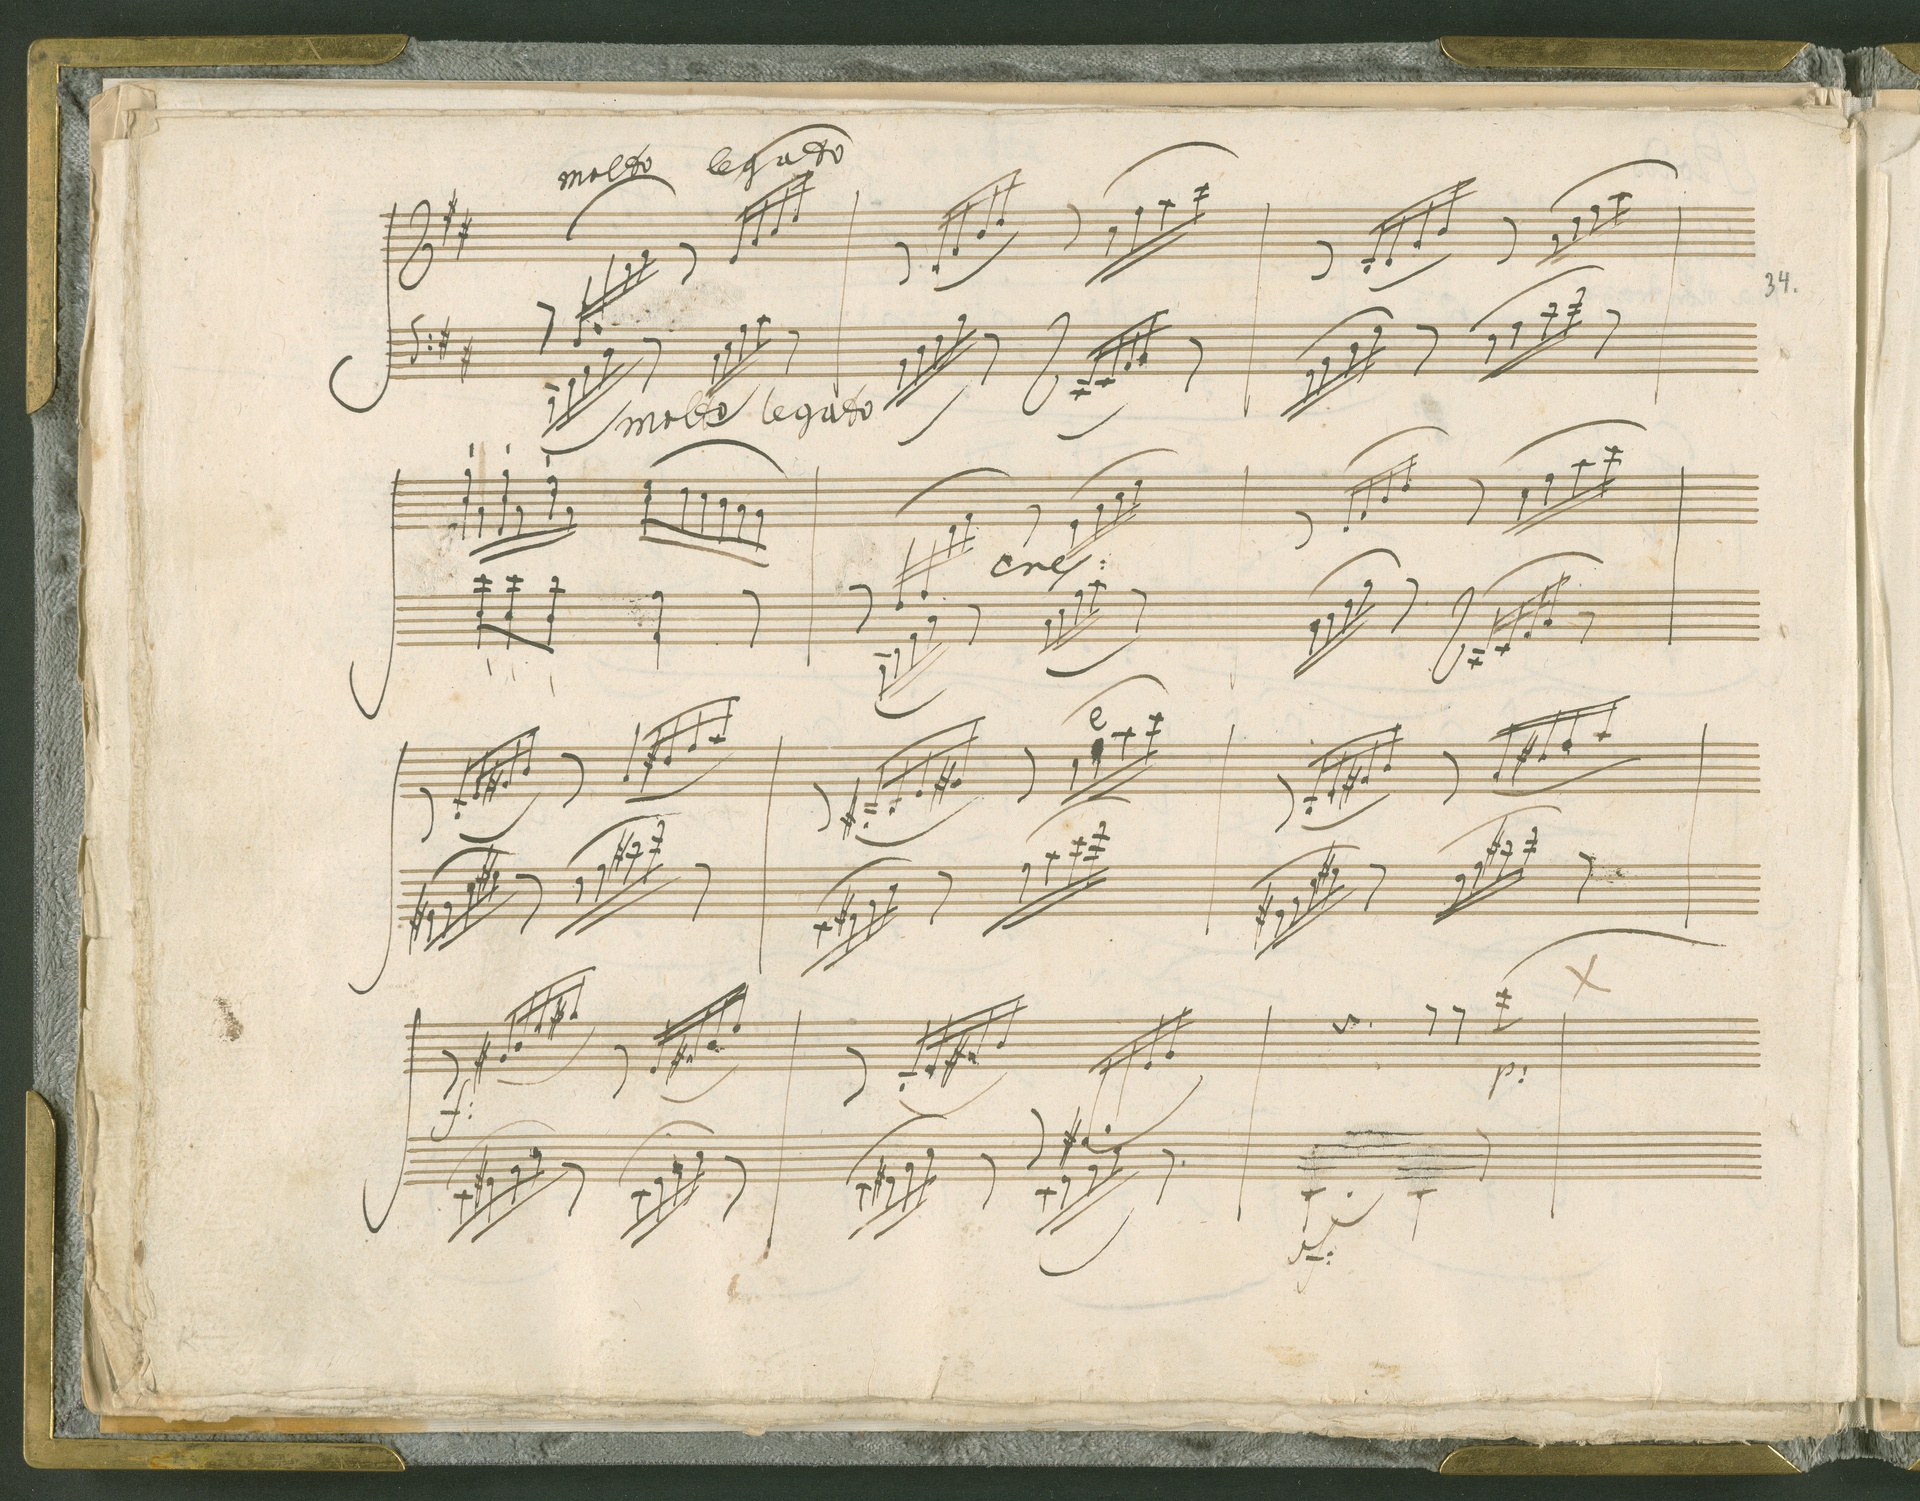 molto legato
34.
molto legato
cre:
e
f:
p:
sf: